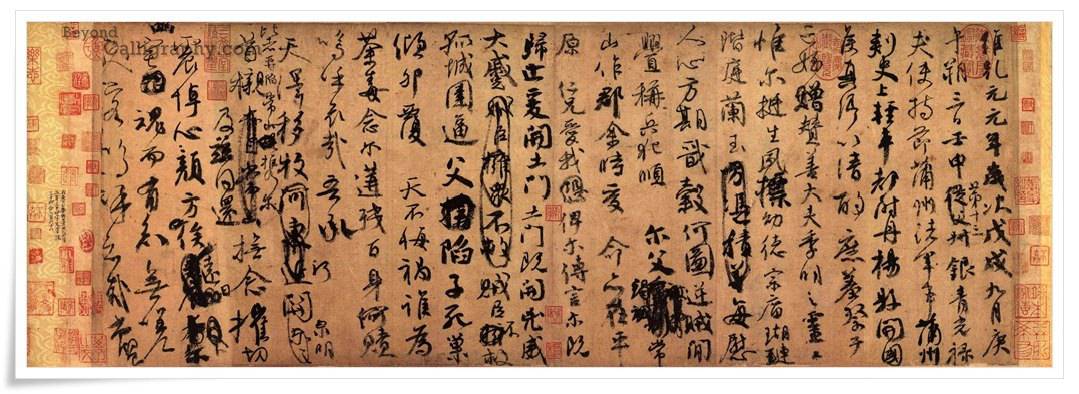 Beyond
Calligraphy.com
維乾元元年歲次戊戌九月庚
午朔三日壬申第十三從父銀青光祿
夫使持節蒲州諸軍事蒲州
刺史上輕車都尉丹楊縣開國
侯真卿以清酌庶羞祭于
亡姪贈贊善大夫季明之靈曰
惟爾挺生夙標幼德宗廟瑚璉
階庭蘭玉方憑積善每慰
人心方期戩穀何圖逆賊閒
釁稱兵犯順爾父竭誠常
山作郡余時受命亦在平
原仁兄愛我俾爾傳言爾既
歸止爰開土門土門既開兇威
大蹙賊臣擁眾不救賊臣不救
孤城圍逼父陷子死巢
傾卵覆天不悔禍誰為
荼毒念爾遘殘百身何贖
嗚呼哀哉吾承
天澤移牧河關泉明
比者再陷常山攜爾
首櫬及茲同還撫念摧切
震悼心顏方俟遠日
魂而有知無嗟
久客嗚呼哀哉尚饗